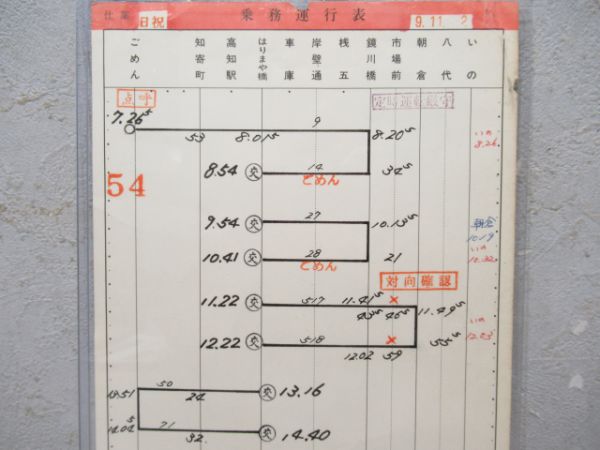 仕業 日祝 乗務運行表 9.11. 2
ごめん 知寄町 高知駅 はりまや橋 車庫 岸壁通 桟五 鏡川橋 市場前 朝倉 八代 いの
点呼
定時運転厳守
7.26⁵ 9
53 8.01⁵ 8.20⁵ いの 8.26
8.54 交 14 34⁵
ごめん
54
9.54 交 27 10.13⁵ 朝倉 10.19
10.41 交 28 21 いの
ごめん
対向確認
11.22 交 517 11.41⁵ × 11.49⁵
43⁵ 46⁵ いの
12.22 交 518 × 55⁵
12.02 59
50 交 13.16
13.51 24
14.04⁵ 21 交 14.40
32